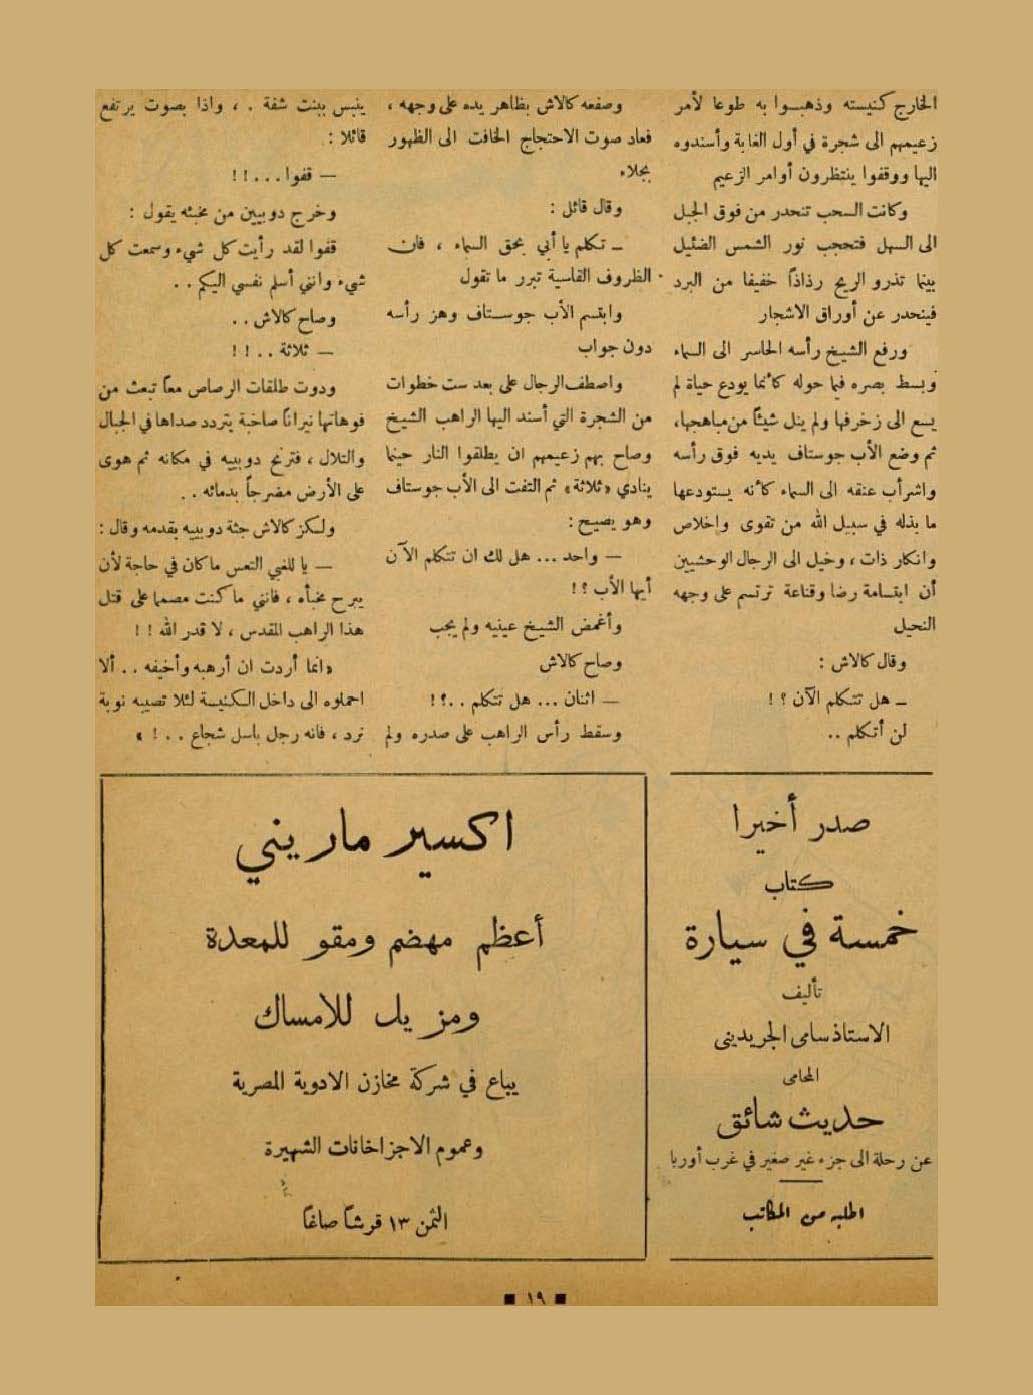 الخارج كنيسته وذهبوا به طوعا لأمر
زعيمهم الى شجرة في أول الغابة وأسندوه
اليها ووقفوا ينتظرون أوامر الزعيم
وكانت السحب تنحدر من فوق الجبل
الى السهل فتحجب نور الشمس الضئيل
بينما تذرو الريح رذاذاً خفيفا من البرد
فينحدر عن أوراق الاشجار
ورفع الشيخ رأسه الحاسر الى السماء
وبسط بصره فيما حوله كأنما يودع حياة لم
يسع الى زخرفها ولم ينل شيئاً من مباهجها،
ثم وضع الأب جوستاف يديه فوق رأسه
واشرأب عنقه الى السماء كأنه يستودعها
ما بذله في سبيل الله من تقوى واخلاص
وانكار ذات ، وخيل الى الرجال الوحشيين
أن ابتسامة رضا وقناعة ترتسم على وجهه
النحيل
وقال كالاش :
ـ هل تتكلم الآن ؟ !
لن أتكلم ..
وصفعه كالاش بظاهر يده على وجهه ،
فعاد صوت الاحتجاج الخافت الى الظهور
بجلاء
وقال قائل :
ـ تكلم يا أبي بحق السماء ، فان
الظروف القاسية تبرر ما تقول
وابتسم الأب جوستاف وهز رأسه
دون جواب
واصطف الرجال على بعد ست خطوات
من الشجرة التي أسند اليها الراهب الشيخ
وصاح بهم زعيمهم ان يطلقوا النار حينما
ينادي «ثلاثة» ثم التفت الى الأب جوستاف
وهو يصيح :
— واحد ... هل لك ان تتكلم الآن
أيها الأب ؟ !
وأغمض الشيخ عينيه ولم يجب
وصاح كالاش
— اثنان ... هل تتكلم ..؟ !
وسقط رأس الراهب على صدره ولم
ينبس ببنت شفة . ، واذا بصوت يرتفع
قائلا :
— قفوا...! !
وخرج دوبيين من مخبئه يقول :
قفوا لقد رأيت كل شيء وسمعت كل
شيء وانني أسلم نفسي اليكم ..
وصاح كالاش ..
— ثلاثة ..! !
ودوت طلقات الرصاص معاً تبعث من
فوهاتها نيراناً صاخبة يتردد صداها في الجبال
والتلال ، فترنح دوبييه في مكانه ثم هوى
على الأرض مضرجاً بدمائه ..
ولكز كالاش جثة دوبييه بقدمه وقال :
— يا للغبي التعس ما كان في حاجة لأن
يبرح مخبأه ، فانني ما كنت مصمما على قتل
هذا الراهب المقدس ، لا قدر الله ! !
«انما أردت ان أرهبه وأخيفه .. ألا
احملوه الى داخل الكنيسة لئلا تصيبه نوبة
برد ، فانه رجل باسل شجاع ..! »
صدر أخيرا
كتاب
خمسة في سيارة
تأليف
الاستاذ سامى الجريدينى
المحامى
حديث شائق
عن رحلة الى جزء غير صغير في غرب أوربا
اطلبه من المكاتب
اكسير ماريني
أعظم مهضم ومقو للمعدة
ومزيل للامساك
يباع في شركة مخازن الادوية المصرية
وعموم الاجزاخانات الشهيرة
الثمن ١٣ قرشاً صاغاً
■ ١٩ ■